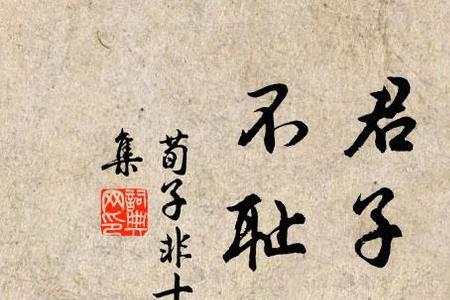 君子
不耻
荀子非十
集
詞典
网印